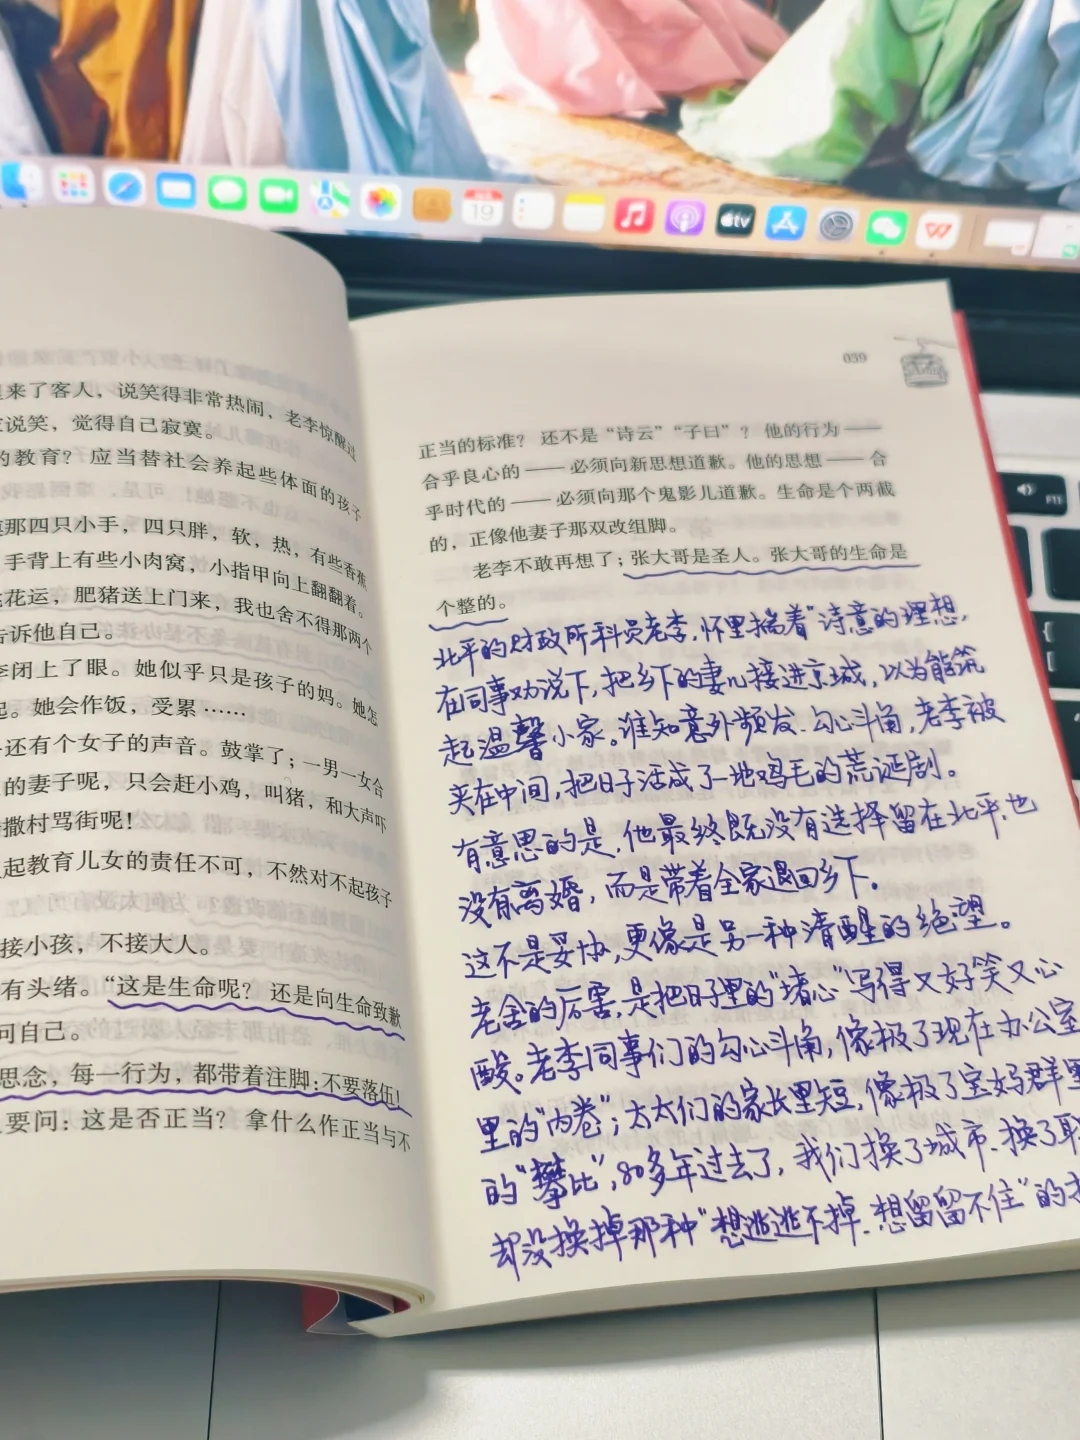 19
tv
F11
来了客人，说笑得非常热闹，老李惊醒过
说笑，觉得自己寂寞。
的教育？应当替社会养起些体面的孩子
那四只小手，四只胖，软，热，有些香蕉
手背上有些小肉窝，小指甲向上翻翻着。
花运，肥猪送上门来，我也舍不得那两个
告诉他自己。
李闭上了眼。她似乎只是孩子的妈。她怎
起。她会作饭，受累……
还有个女子的声音。鼓掌了；一男一女合
的妻子呢，只会赶小鸡，叫猪，和大声吓
撒村骂街呢！
起教育儿女的责任不可，不然对不起孩子
接小孩，不接大人。
有头绪。“这是生命呢？还是向生命致歉
问自己。
思念，每一行为，都带着注脚：不要落伍！
要问：这是否正当？拿什么作正当与不
059
正当的标准？还不是“诗云”“子曰”？他的行为——
合乎良心的——必须向新思想道歉。他的思想——合
乎时代的——必须向那个鬼影儿道歉。生命是个两截
的，正像他妻子那双改组脚。
老李不敢再想了；张大哥是圣人。张大哥的生命是
个整的。
北平的财政所科员老李，怀里揣着“诗意的理想，
在同事劝说下，把乡下的妻儿接进京城，以为能筑
起温馨小家。谁知意外频发、勾心斗角，老李被
夹在中间，把日子活成了一地鸡毛的荒诞剧。
有意思的是，他最终既没有选择留在北平，也
没有离婚，而是带着全家退回乡下。
这不是妥协，更像是另一种清醒的绝望。
老舍的厉害，是把日子里的“堵心”写得又好笑又心
酸。老李同事们的勾心斗角，像极了现在办公室
里的“内卷”；太太们的家长里短，像极了宝妈群里
的“攀比”，80多年过去了，我们换了城市、换了
却没换掉那种“想逃逃不掉、想留留不住”的